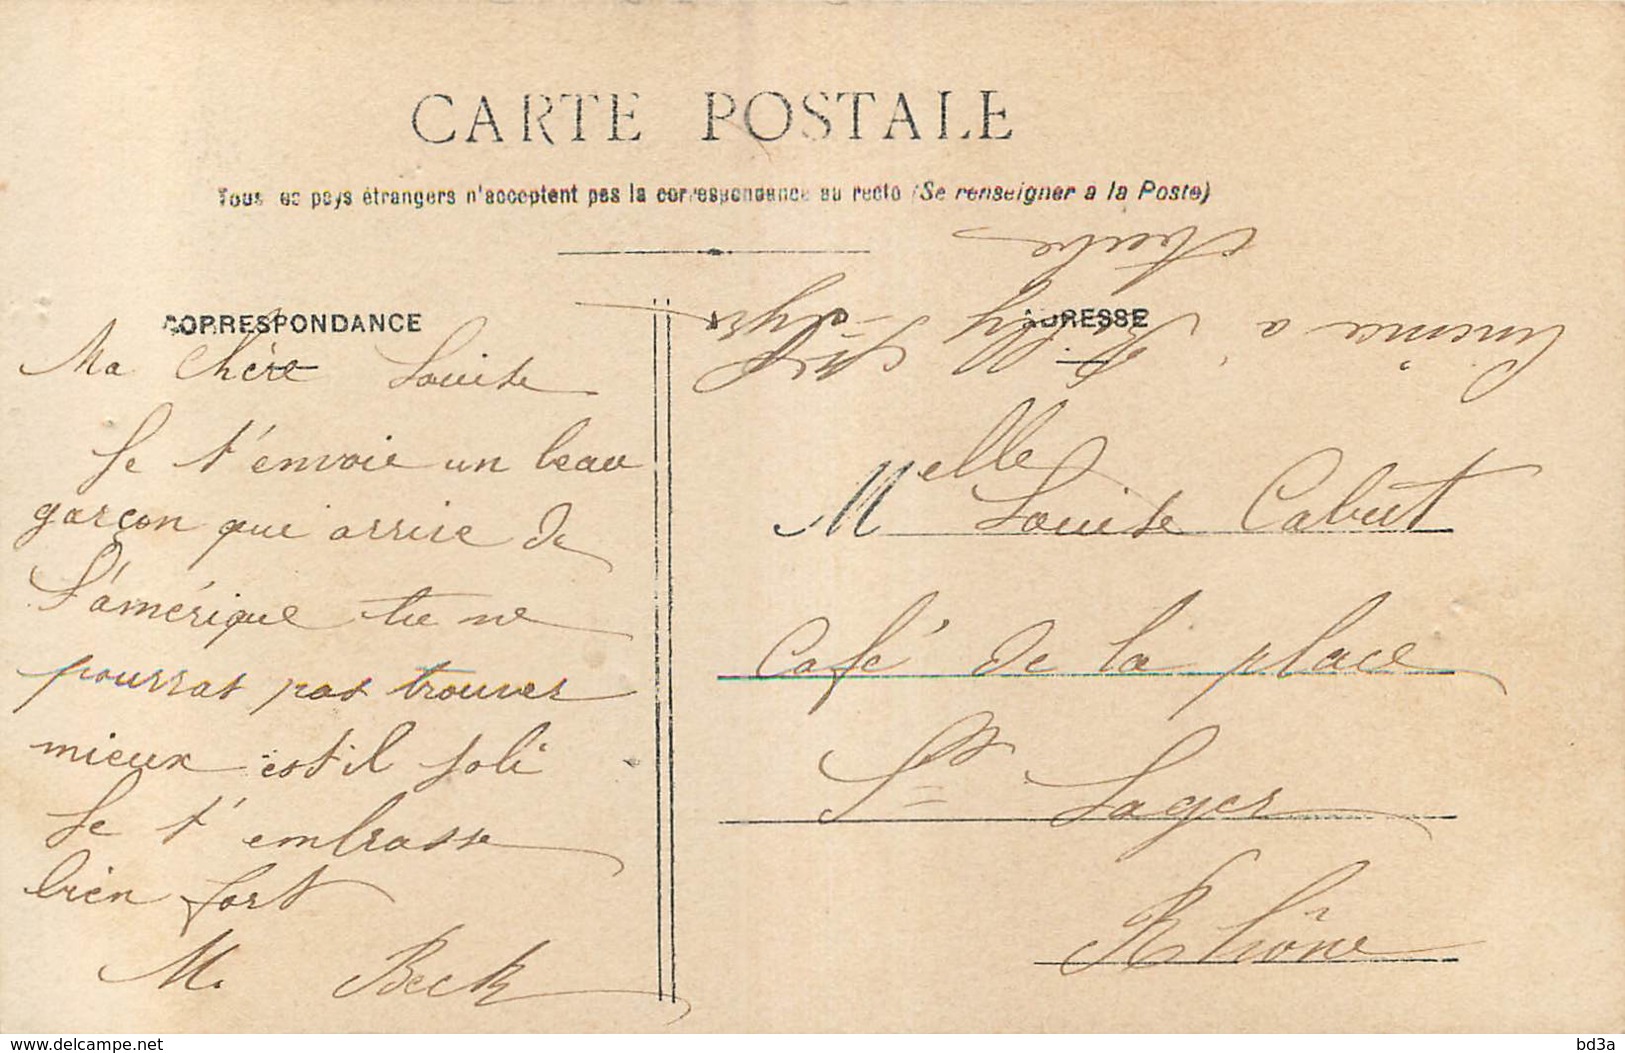 CARTE POSTALE
Tous les pays étrangers n'acceptent pas la correspondance au recto (Se renseigner à la Poste)
CORRESPONDANCE
Ma Chère Louise
Je t'envoie un beau
garçon que arrive de
L'amérique tu ne
pourras pas trouver
mieux est il joli
Je t'embrasse
bien fort
M. Beck
ADRESSE
Melle Louise Cabut
Café de la place
St Lager
Rhône
Cinéma a
Aube
delcampe.net
bd3a